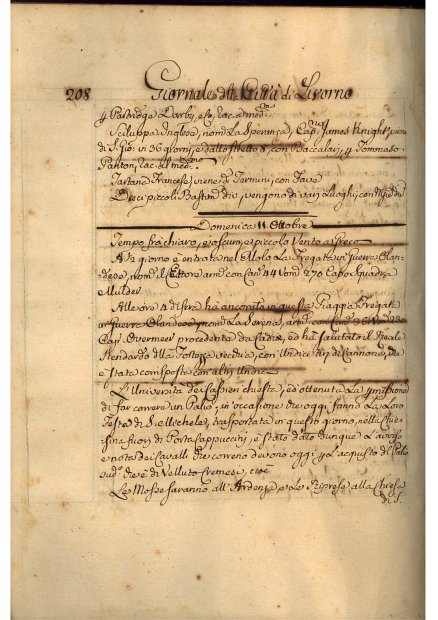 208 Giornale della Città di Livorno
Patridge e Darby, e C. racc. al med.mo
Sciluppa Inglese, nom.a La Speranza, Cap.no James Knight, viene
di S. Gio: in 36 giorni, e dallo stretto 8, con Baccalari, Tommaso
Panton, racc. al med.mo
Tartana Francese, viene da Termini, con Fave
Dieci piccoli Bastim.ti che vengono di vari Luoghi, con
Domenica 11. Ottobre
Tempo frà chiaro, e oscuro, e piccolo Vento a Greco
A giorno è entrata nel Molo La Fregata in Guerra Olan-
dese, nom. Ettore arm. con Can. 44 Uom. 270 Capo Squadra
Mulder
Alle ore 4 di sera hà ancorato in questa Piaggia Fregata
in Guerra Olandese, nom. La Sirena, arm. con Can.
Cap. Overmeer procedente da Cadice, ed hà salutato il Reale
Stendardo della Fortezza vecchia, con Undici tiri di Cannone, ed
è stata corrisposta con altri Undici
L'Università dei chiesta, ed ottenuta La permissione
di far correre un Palio, in occasione che oggi fanno La Loro
Festa di S. Michele, trasportata in questo giorno, nella Chie-
sina fuori di Porta Cappuccini, è stato dato dunque L'avviso
e nota dei Cavalli che correno devono oggi L'acquisto del Palio
sud.o che è di Velluto Cremesi, cioè
Le Mosse saranno all'Ardenza, e Le Riprese alla Chiesa
di S.